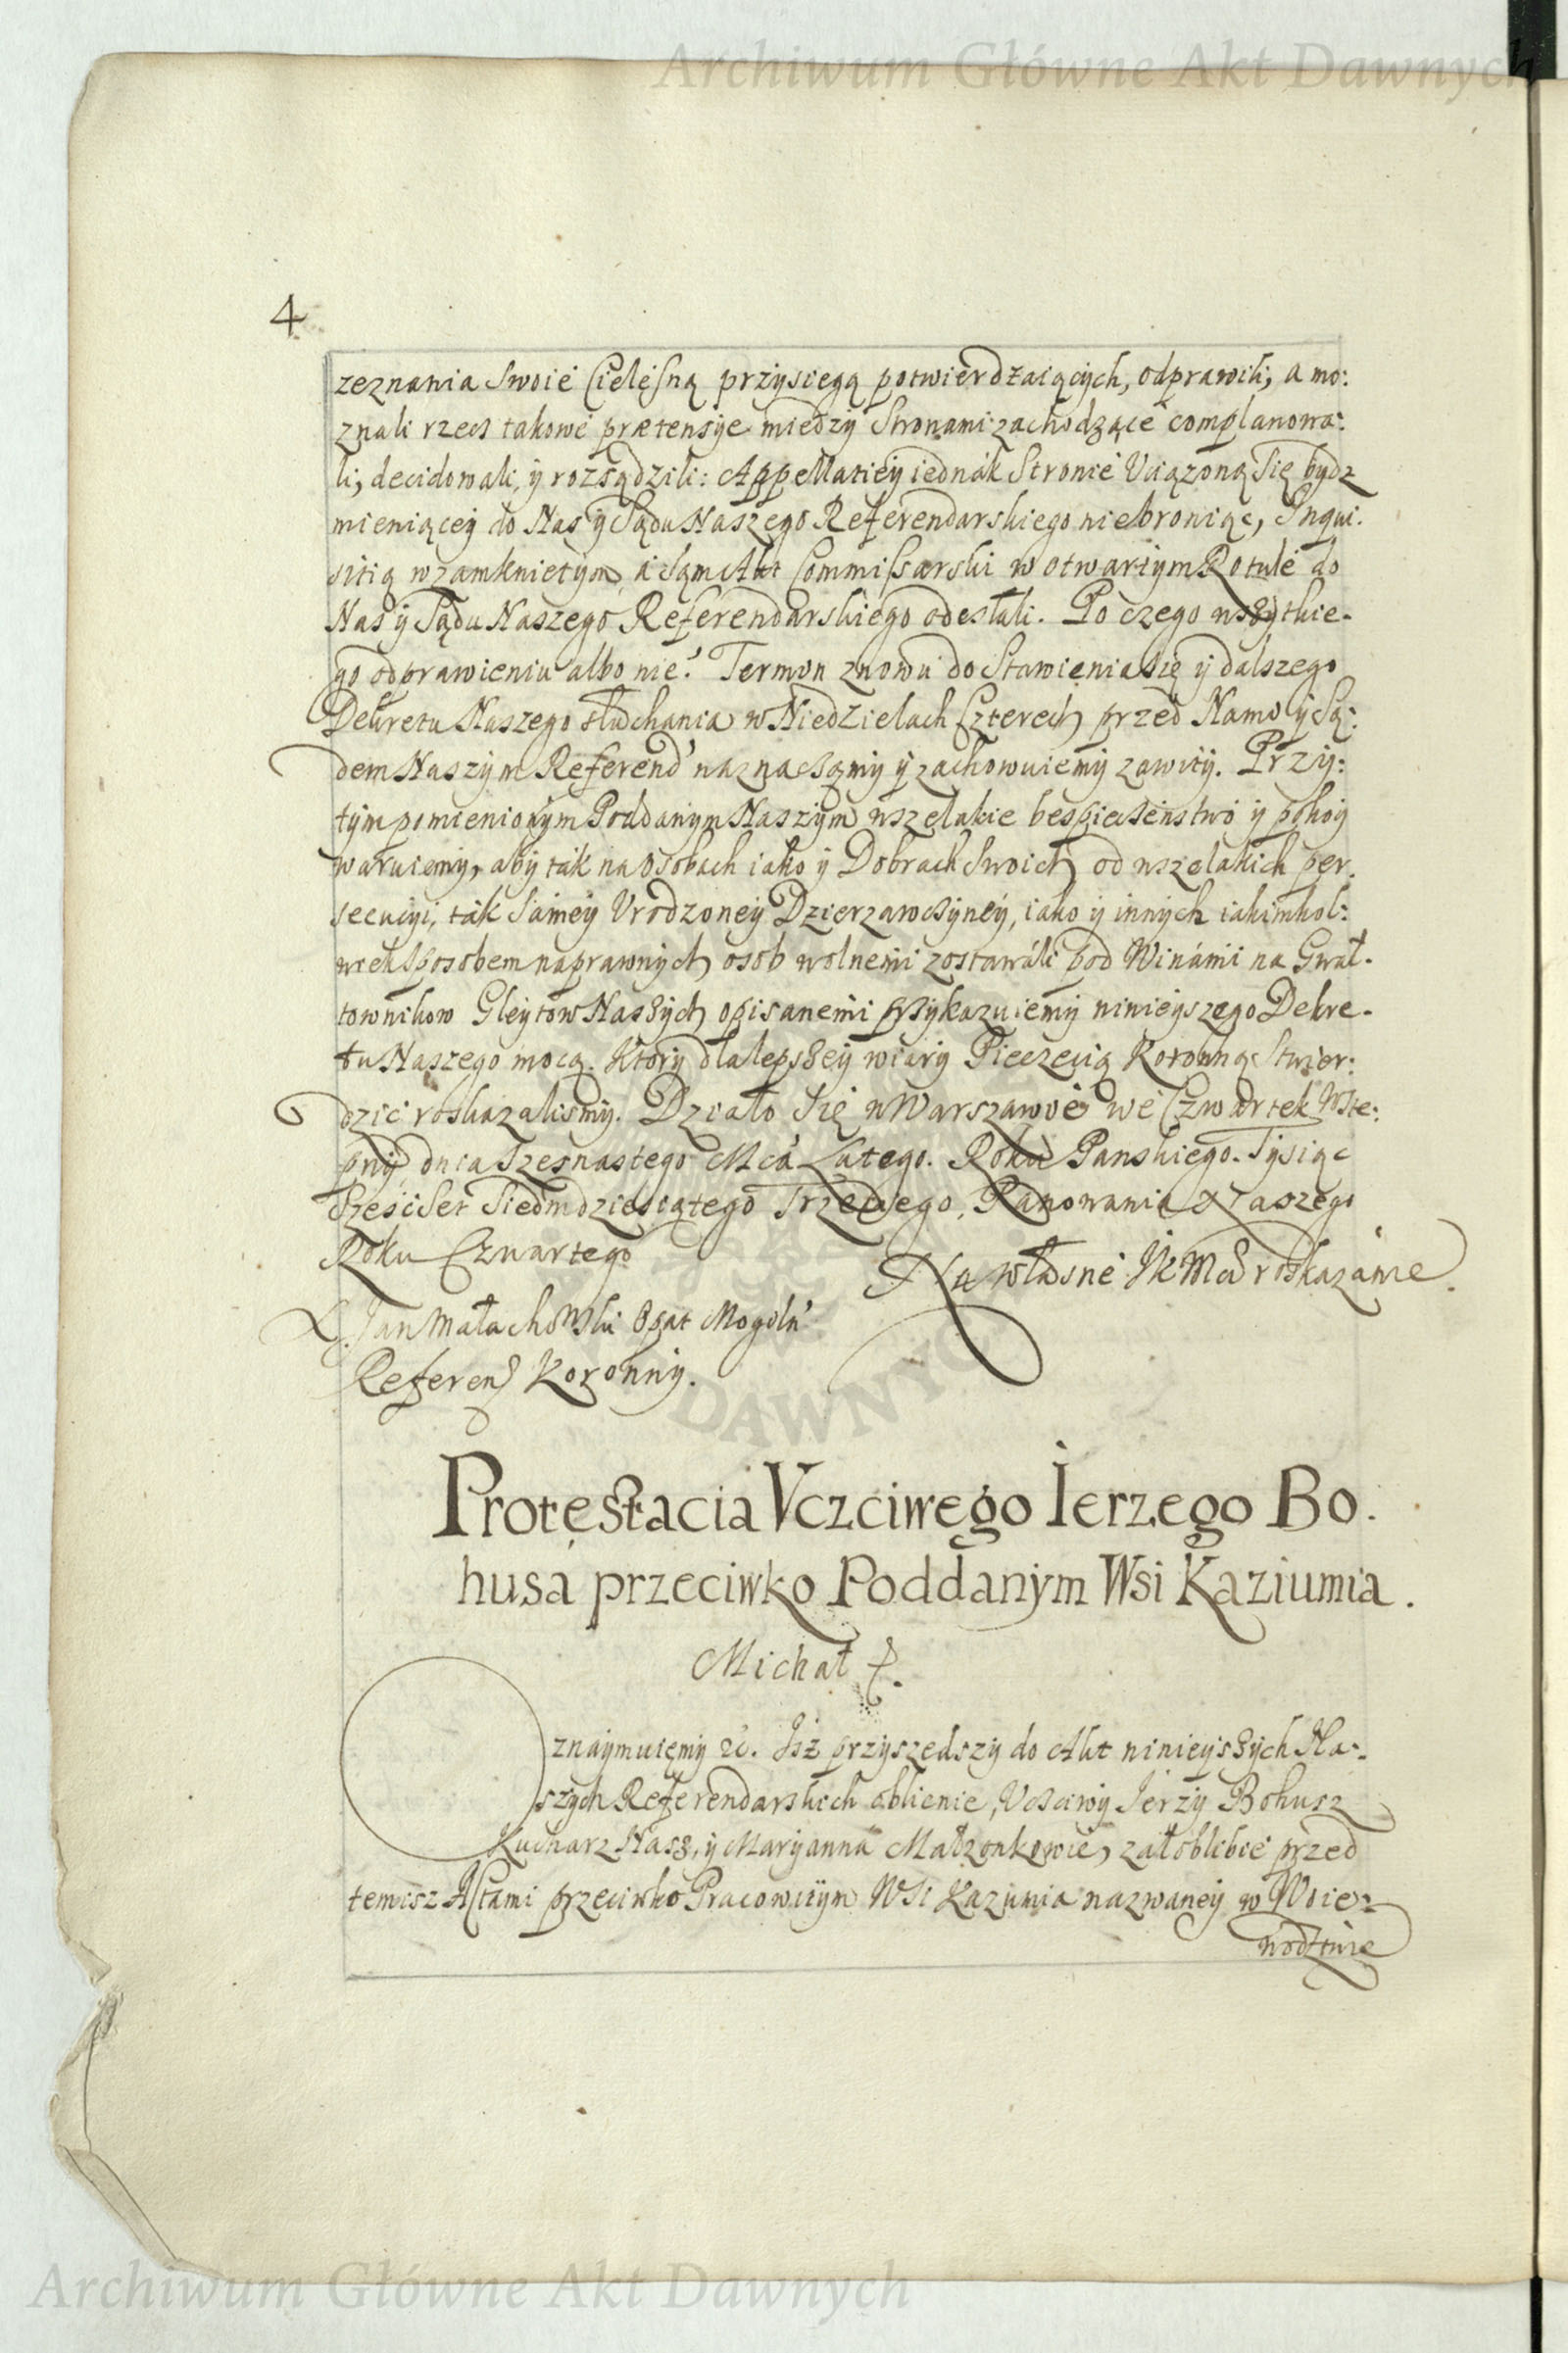 Archiwum Główne Akt Dawnych
4
zeznania swoie Cielesną przysięgą potwierdzaiących, odprawili, a mo:
znali rzecs takowe prætensÿe międzÿ Stronami zachodzące complanowa:
li, decidowali, ÿ rozsądzili: Appellatieÿ iednák Stronie Uciążoną się bydz
mieniąceÿ do Nas ÿ Sądu Naszego Referendarskiego niebroniąc, Inqui:
sitią w zamknietÿm, á sąm Akt Commissarski w otwartÿm Rotule do
Nas ÿ Sądu Naszego Referendarskiego odesłali. Po czego wszÿtkie-
go odprawieniu albo nie. Termin znowu do Stawienia się ÿ dalszego
Dekretu Naszego słuchania w Niedzielach Czterech przed Nami ÿ Są:
dem Naszÿm Referend' naznaczamÿ ÿ zachowuiemÿ zawitÿ. Przÿ:
tÿm pomienionÿm Poddanÿm Naszÿm wszelakie bespieczenstwo ÿ pokoÿ
waruiemÿ, abÿ ták na osobach iako ÿ Dobrach swoich od wszelakich per:
secucÿi, ták sameÿ Urodzoneÿ Dzierzawczÿneÿ, iako ÿ innÿch iakimkol:
wiek sposobem naprawnÿch osob wolnemi zostawáli pod Winámi na Gwał-
townikow Gleÿtow Naszÿch opisanemi przÿkazuiemÿ ninieÿszego Dekre-
tu Naszego mocą. Ktorÿ dla lepszeÿ wiarÿ Pieczecią Koronną stwier:
dzic roskazalismÿ. Działo się w Warszawie we Czwartek Wste:
pnÿ dnia Szesnastego Mca Lutego. Roku Panskiego. Tÿsiąc
Szescset Siedmdziesiątego Trzeciego, Panowania Naszego
Roku Czwartego
Na własne JKMci roskazánie.
X. Jan Małachowski Opat Mogiln'
Referend Koronnÿ.
Protestacia Vczciwego Ierzego Bo.
husa przeciwko Poddanÿm Wsi Kaziumia.
Michał &.
Oznaÿmuięmÿ &c. Isz przÿszedszÿ do Akt ninieÿszÿch Na:
szÿch Referendarskich oblicnie, Uczciwÿ Jerzÿ Bohusz
Kucharz Nasz, ÿ Marÿanna Małzonkowie, załobliwie przed
temisz Actami przeciwko Pracowitÿm Wsi Kazumia nazwaneÿ w Woie:
wodztwie
DAWNYCH
Archiwum Główne Akt Dawnych